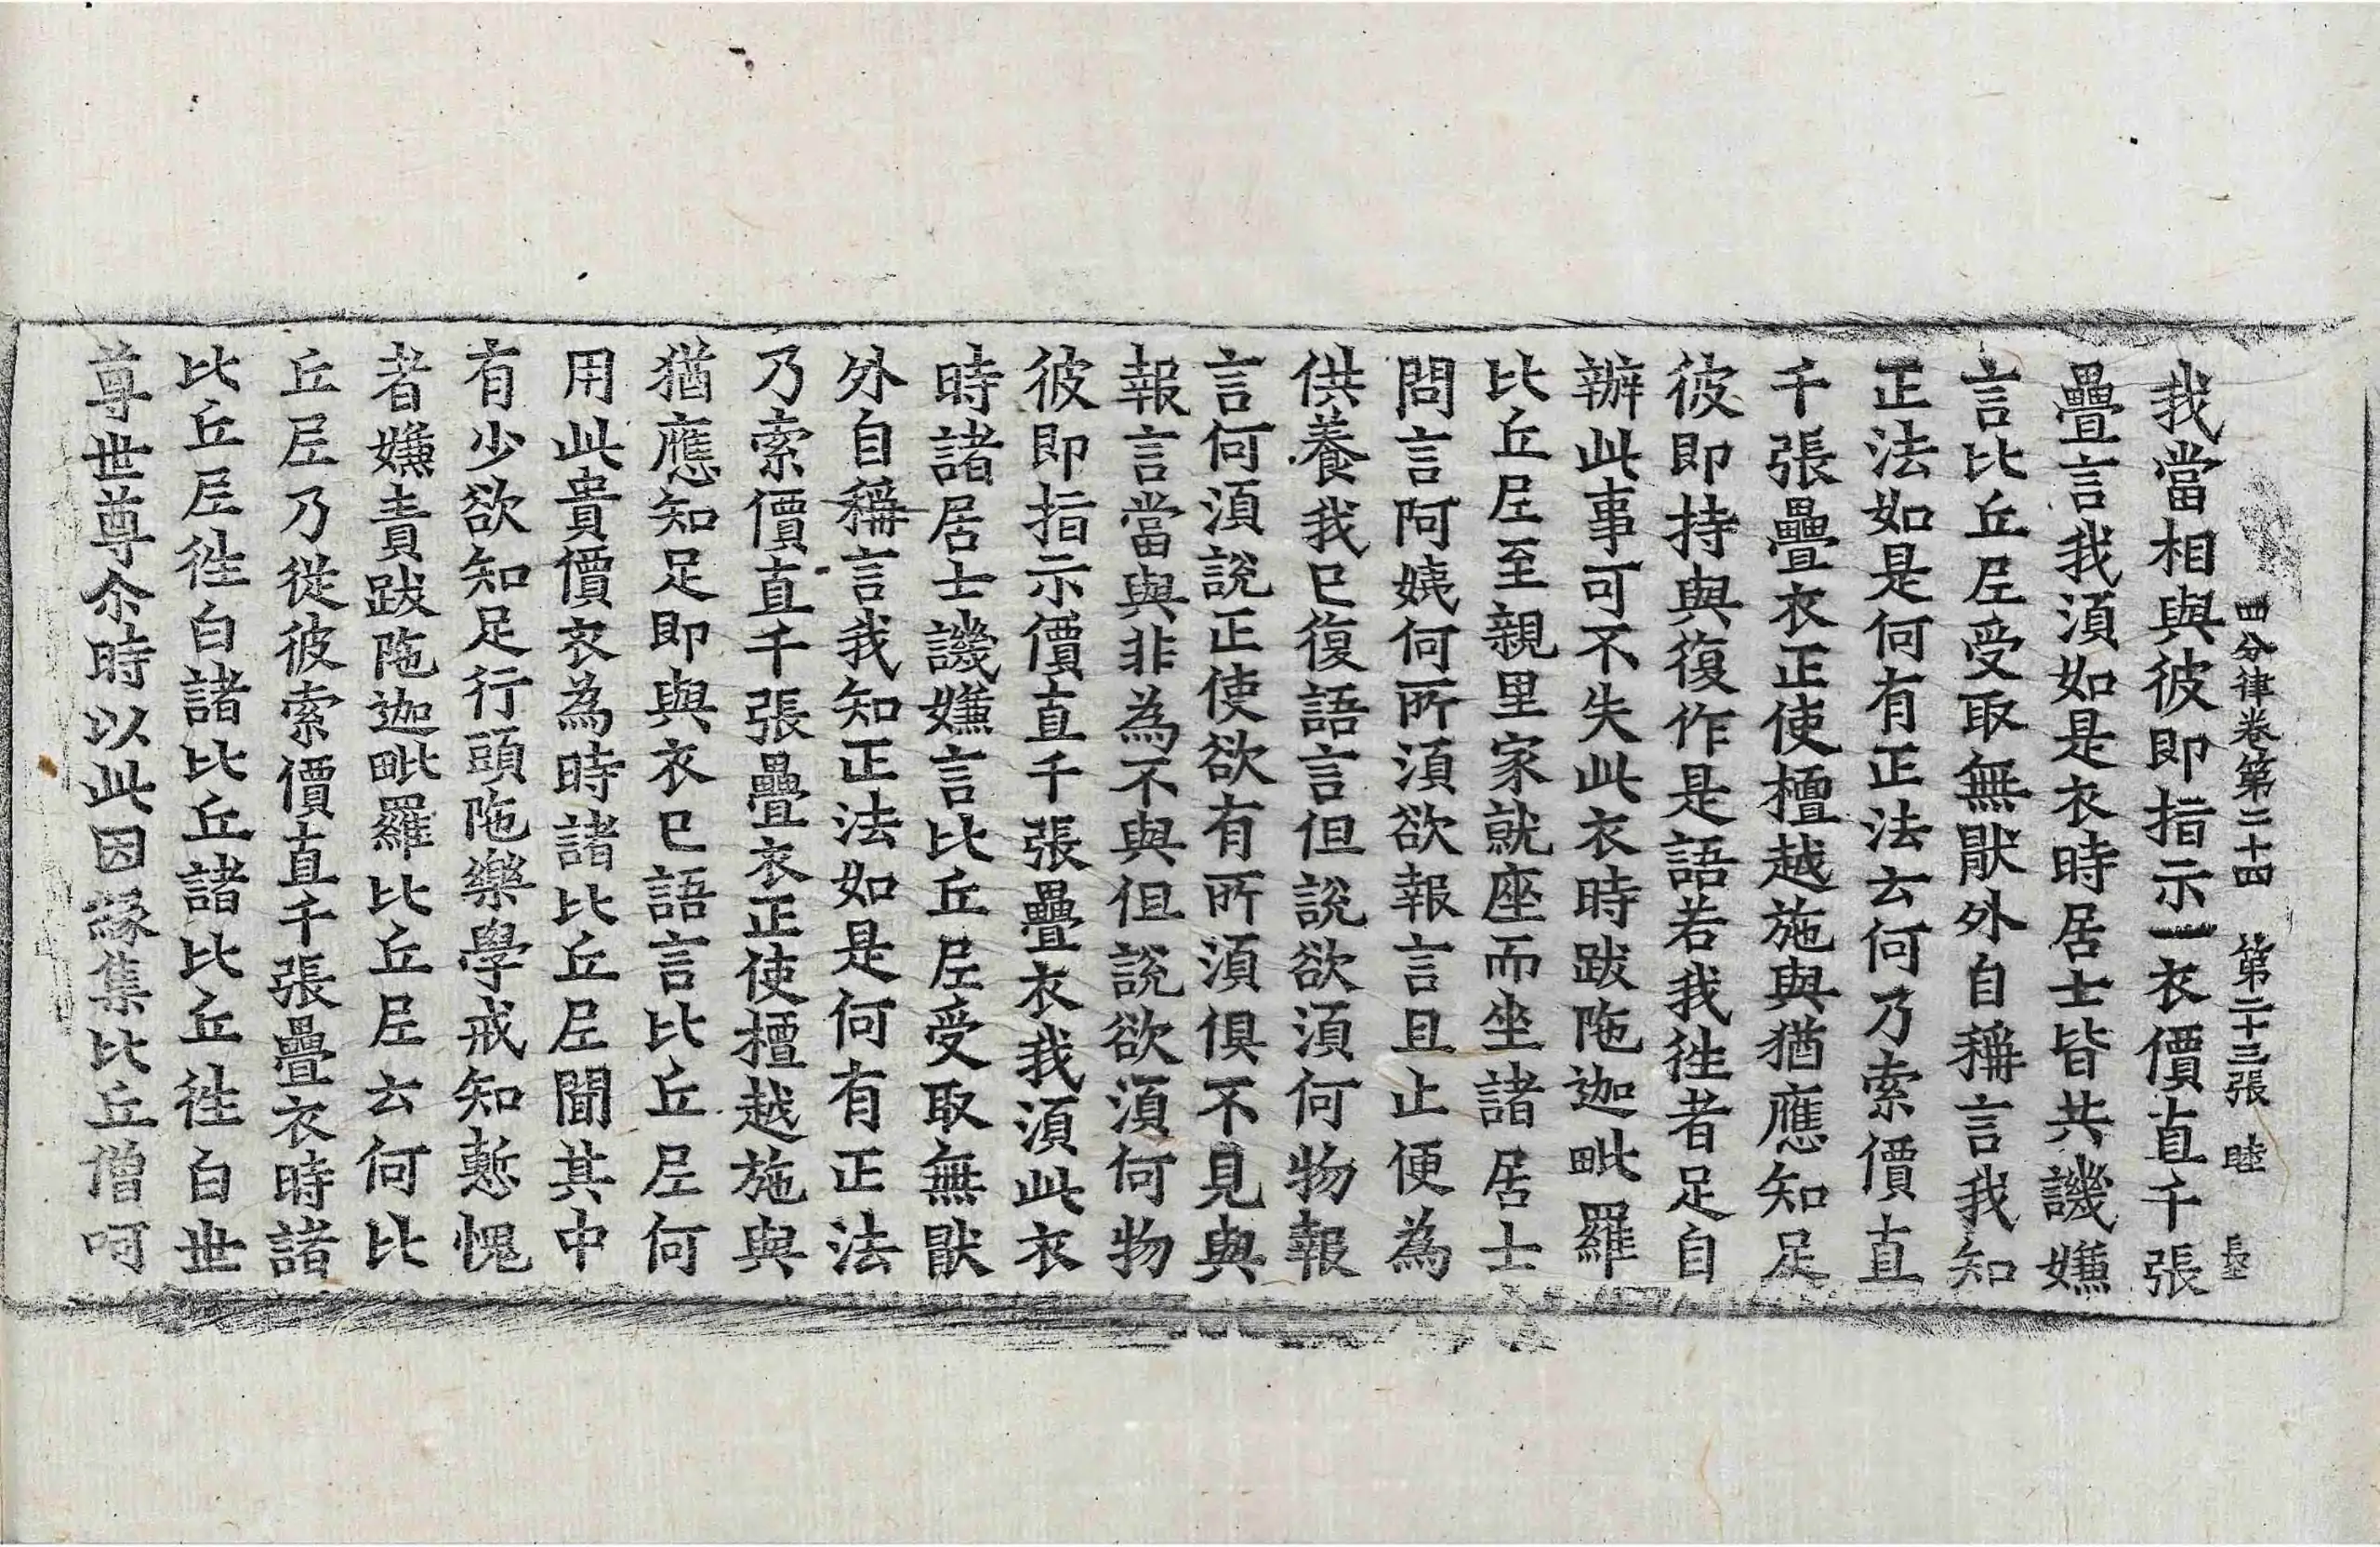 四分律卷第二十四 第二十三張 睦
我當相與彼即指示一衣價直千張
疊言我須如是衣時居士皆共譏嫌
言比丘𡰱受取無猒外自稱言我知
正法如是何有正法云何乃索價直
千張疊衣正使檀越施與猶應知足
彼即持與復作是語若我徃者足自
辦此事可不失此衣時跋陁迦毗羅
比丘𡰱至親里家就座而坐諸居士
問言阿姨何所須欲報言且止便為
供養我已復語言但說欲須何物報
言何須說正使欲有所須俱不見與
報言當與非為不與但說欲須何物
彼即指示價直千張疊衣我須此衣
時諸居士譏嫌言比丘𡰱受取無猒
外自稱言我知正法如是何有正法
乃索價直千張疊衣正使檀越施與
猶應知足即與衣已語言比丘𡰱何
用此貴價衣為時諸比丘𡰱聞其中
有少欲知足行頭陁樂學戒知慙愧
者嫌責跋陁迦毗羅比丘𡰱云何比
丘𡰱乃從彼索價直千張疊衣時諸
比丘𡰱徃白諸比丘諸比丘徃白世
尊世尊尒時以此因緣集比丘僧呵